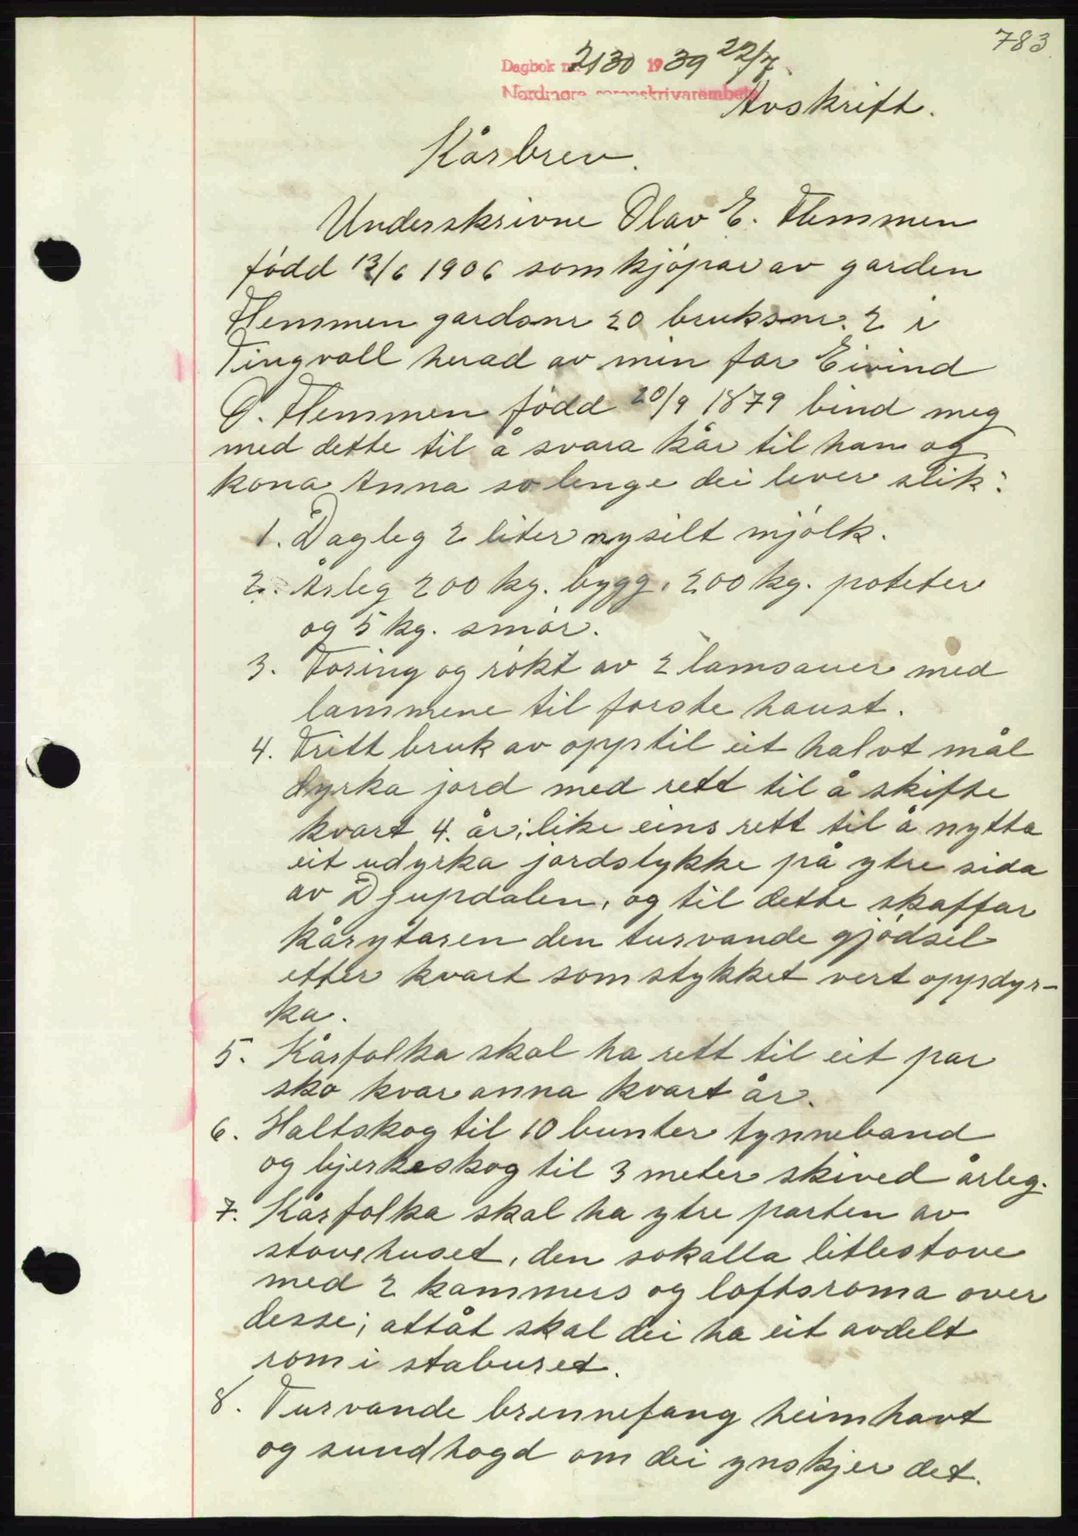 783
Dagbok nr. 2130 1939 22/7.
Nordmøre sorenskrivarembete
Avskrift.
Kårbrev.
Underskrivne Olav E. Hemmen
fødd 13/6 1906 som kjøpar av garden
Hemmen gardsnr 20 bruksnr. 2 i
Tingvoll herad av min far Eivind
O. Hemmen fødd 20/9 1879 bind meg
med dette til å svara kår til han og
kona Anna so lenge dei lever slik:
1. Dagleg 2 liter nysilt mjølk.
2. Årleg 200 kg. bygg, 200 kg. poteter
og 5 kg. smør.
3. Foring og røkt av 2 lamsauer med
lammene til første haust.
4. Fritt bruk av opptil eit halvt mål
dyrka jord med rett til å skifte
kvart 4. år; like eins rett til å nytta
eit udyrka jordstykke på ytre sida
av Djupdalen, og til dette skaffar
kårytaren den turvande gjødsel
etter kvart som stykket vert oppdyr-
ka.
5. Kårfolka skal ha rett til eit par
sko kvar anna kvart år.
6. Haltskog til 10 bunter tynneband
og bjerkeskog til 3 meter skived årleg.
7. Kårfolka skal ha ytre parten av
stovehuset, den sokalla litlestove
med 2 kammers og loftsroma over
desse; attåt skal dei ha eit avdelt
rom i staburet.
8. Turvande brennefang heimhavt
og sundhogd om dei ynskjer det.